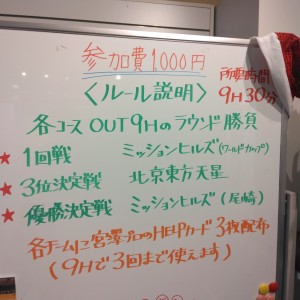 参加費1000円
所要時間
9H30分
〈ルール説明〉
各コース OUT9Hのラウンド勝負
★1回戦 ミッションヒルズ(ワールドカップ)
★3位決定戦 北京東方天星
★優勝決定戦 ミッションヒルズ(尾崎)
各チームに宮澤プロのHELPカード3枚配布
(9Hで3回まで使えます)